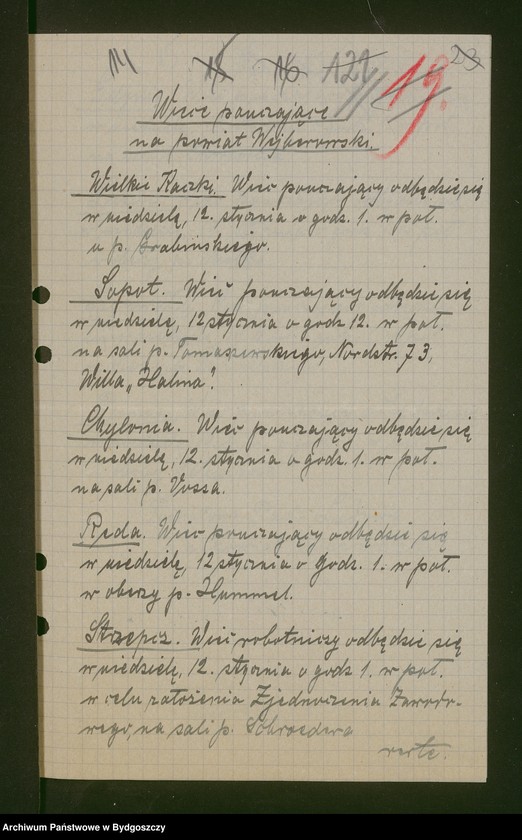 111 18 16 121 19. 23
Wiece pouczające
na powiat Wejherowski.
Wielkie Kaczki. Wiec pouczający odbędzie się
w niedzielę, 12. stycznia o godz. 1. w poł.
u p. Grabińskiego.
Sopot. Wiec pouczający odbędzie się
w niedzielę, 12 stycznia o godz 12. w poł.
na sali p. Tomaszewskiego, Nordstr. 73,
Willa „Halina".
Chylonia. Wiec pouczający odbędzie się
w niedzielę, 12. stycznia o godz. 1. w poł.
na sali p. Vossa.
Reda. Wiec pouczający odbędzie się
w niedzielę, 12 stycznia o godz. 1. w poł.
w oberży p. Hummel.
Strzepcz. Wiec robotniczy odbędzie się
w niedzielę, 12. stycznia o godz 1. w poł.
w celu założenia Zjednoczenia Zawodo-
wego, na sali p. Schroedera
verte.
Archiwum Państwowe w Bydgoszczy